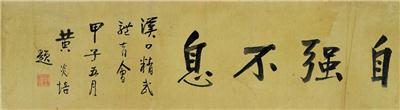 自强不息
漢口精武
體育會
甲子五月
黄炎培
題